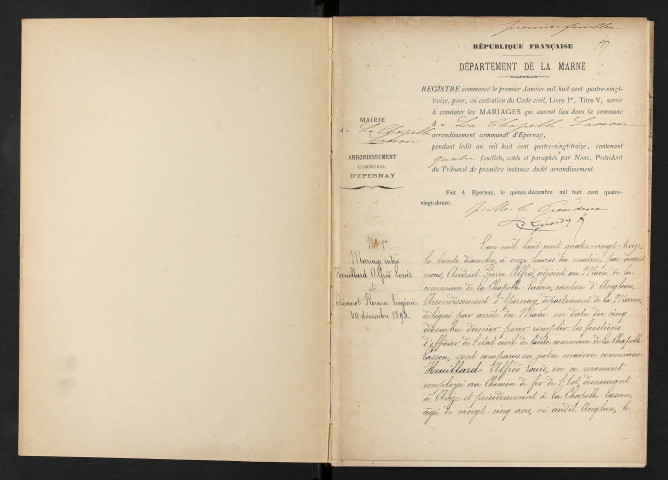 premier feuillet
RÉPUBLIQUE FRANÇAISE
DÉPARTEMENT DE LA MARNE
REGISTRE commencé le premier Janvier mil huit cent quatre-vingt-
treize, pour, en exécution du Code civil, Livre Ier, Titre V, servir
à constater les MARIAGES qui auront lieu dans la commune
d à La Chapelle Lasson
arrondissement communal d'Epernay,
pendant ledit an mil huit cent quatre-vingt-treize, contenant
quatre feuillets, cotés et paraphés par Nous, Président
du Tribunal de première instance dudit arrondissement
Fait à Epernay, le quinze décembre mil huit cent quatre-
vingt-douze.
p. M. le Président
MAIRIE
d La Chapelle
Lasson
ARRONDISSEMENT
COMMUNAL
D'EPERNAY
No 1er
Mariage entre
Heuillard Alfred Louis
et
Florence Eugénie
30 décembre 1893.
L'an mil huit cent quatre-vingt-treize
le trente décembre, à onze heures du matin, par devant
nous, Pierre Alfred, adjoint au Maire de la
commune de la Chapelle-Lasson, canton d'Anglure,
Arrondissement d'Epernay, département de la Marne,
délégué par arrêté du Maire en date du cinq
décembre dernier pour remplir les fonctions
d'officier de l'état civil de ladite commune de la Chapelle
Lasson, sont comparus en notre maison commune
Heuillard Alfred Louis, en ce moment
employé au Chemin de fer de l'Est, demeurant
à et précédemment à la Chapelle Lasson,
âgé de vingt-cinq ans, né audit Anglure, le